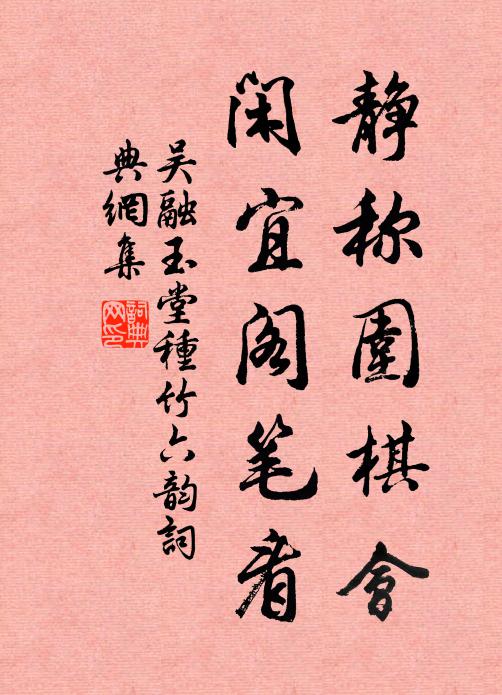 静称圍棋會
闲宜阁笔看
吴融玉堂種竹六韵詞
典網集
詞典
网印